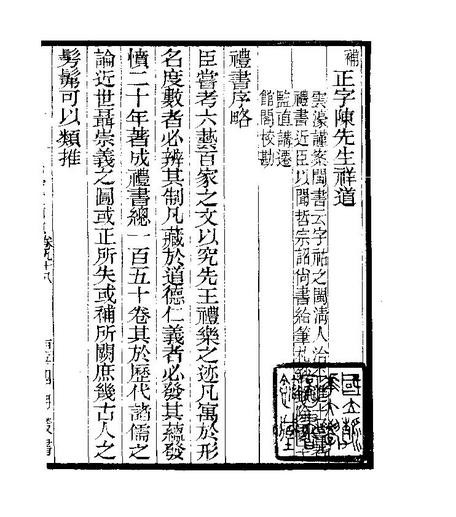 補正字陳先生祥道
雲濠謹案閩書云字祐之閩清人治
禮書近臣以聞哲宗詔尚書給筆札
監直講遷
館閣校勘
禮書序略
臣嘗考六藝百家之文以究先王禮樂之迹凡寓於形
名度數者必辨其制凡藏於道德仁義者必發其蘊發
憤二十年著成禮書總一百五十卷其於歷代諸儒之
論近世聶崇義之圖或正所失或補所闕庶幾古人之
髣髴可以類推